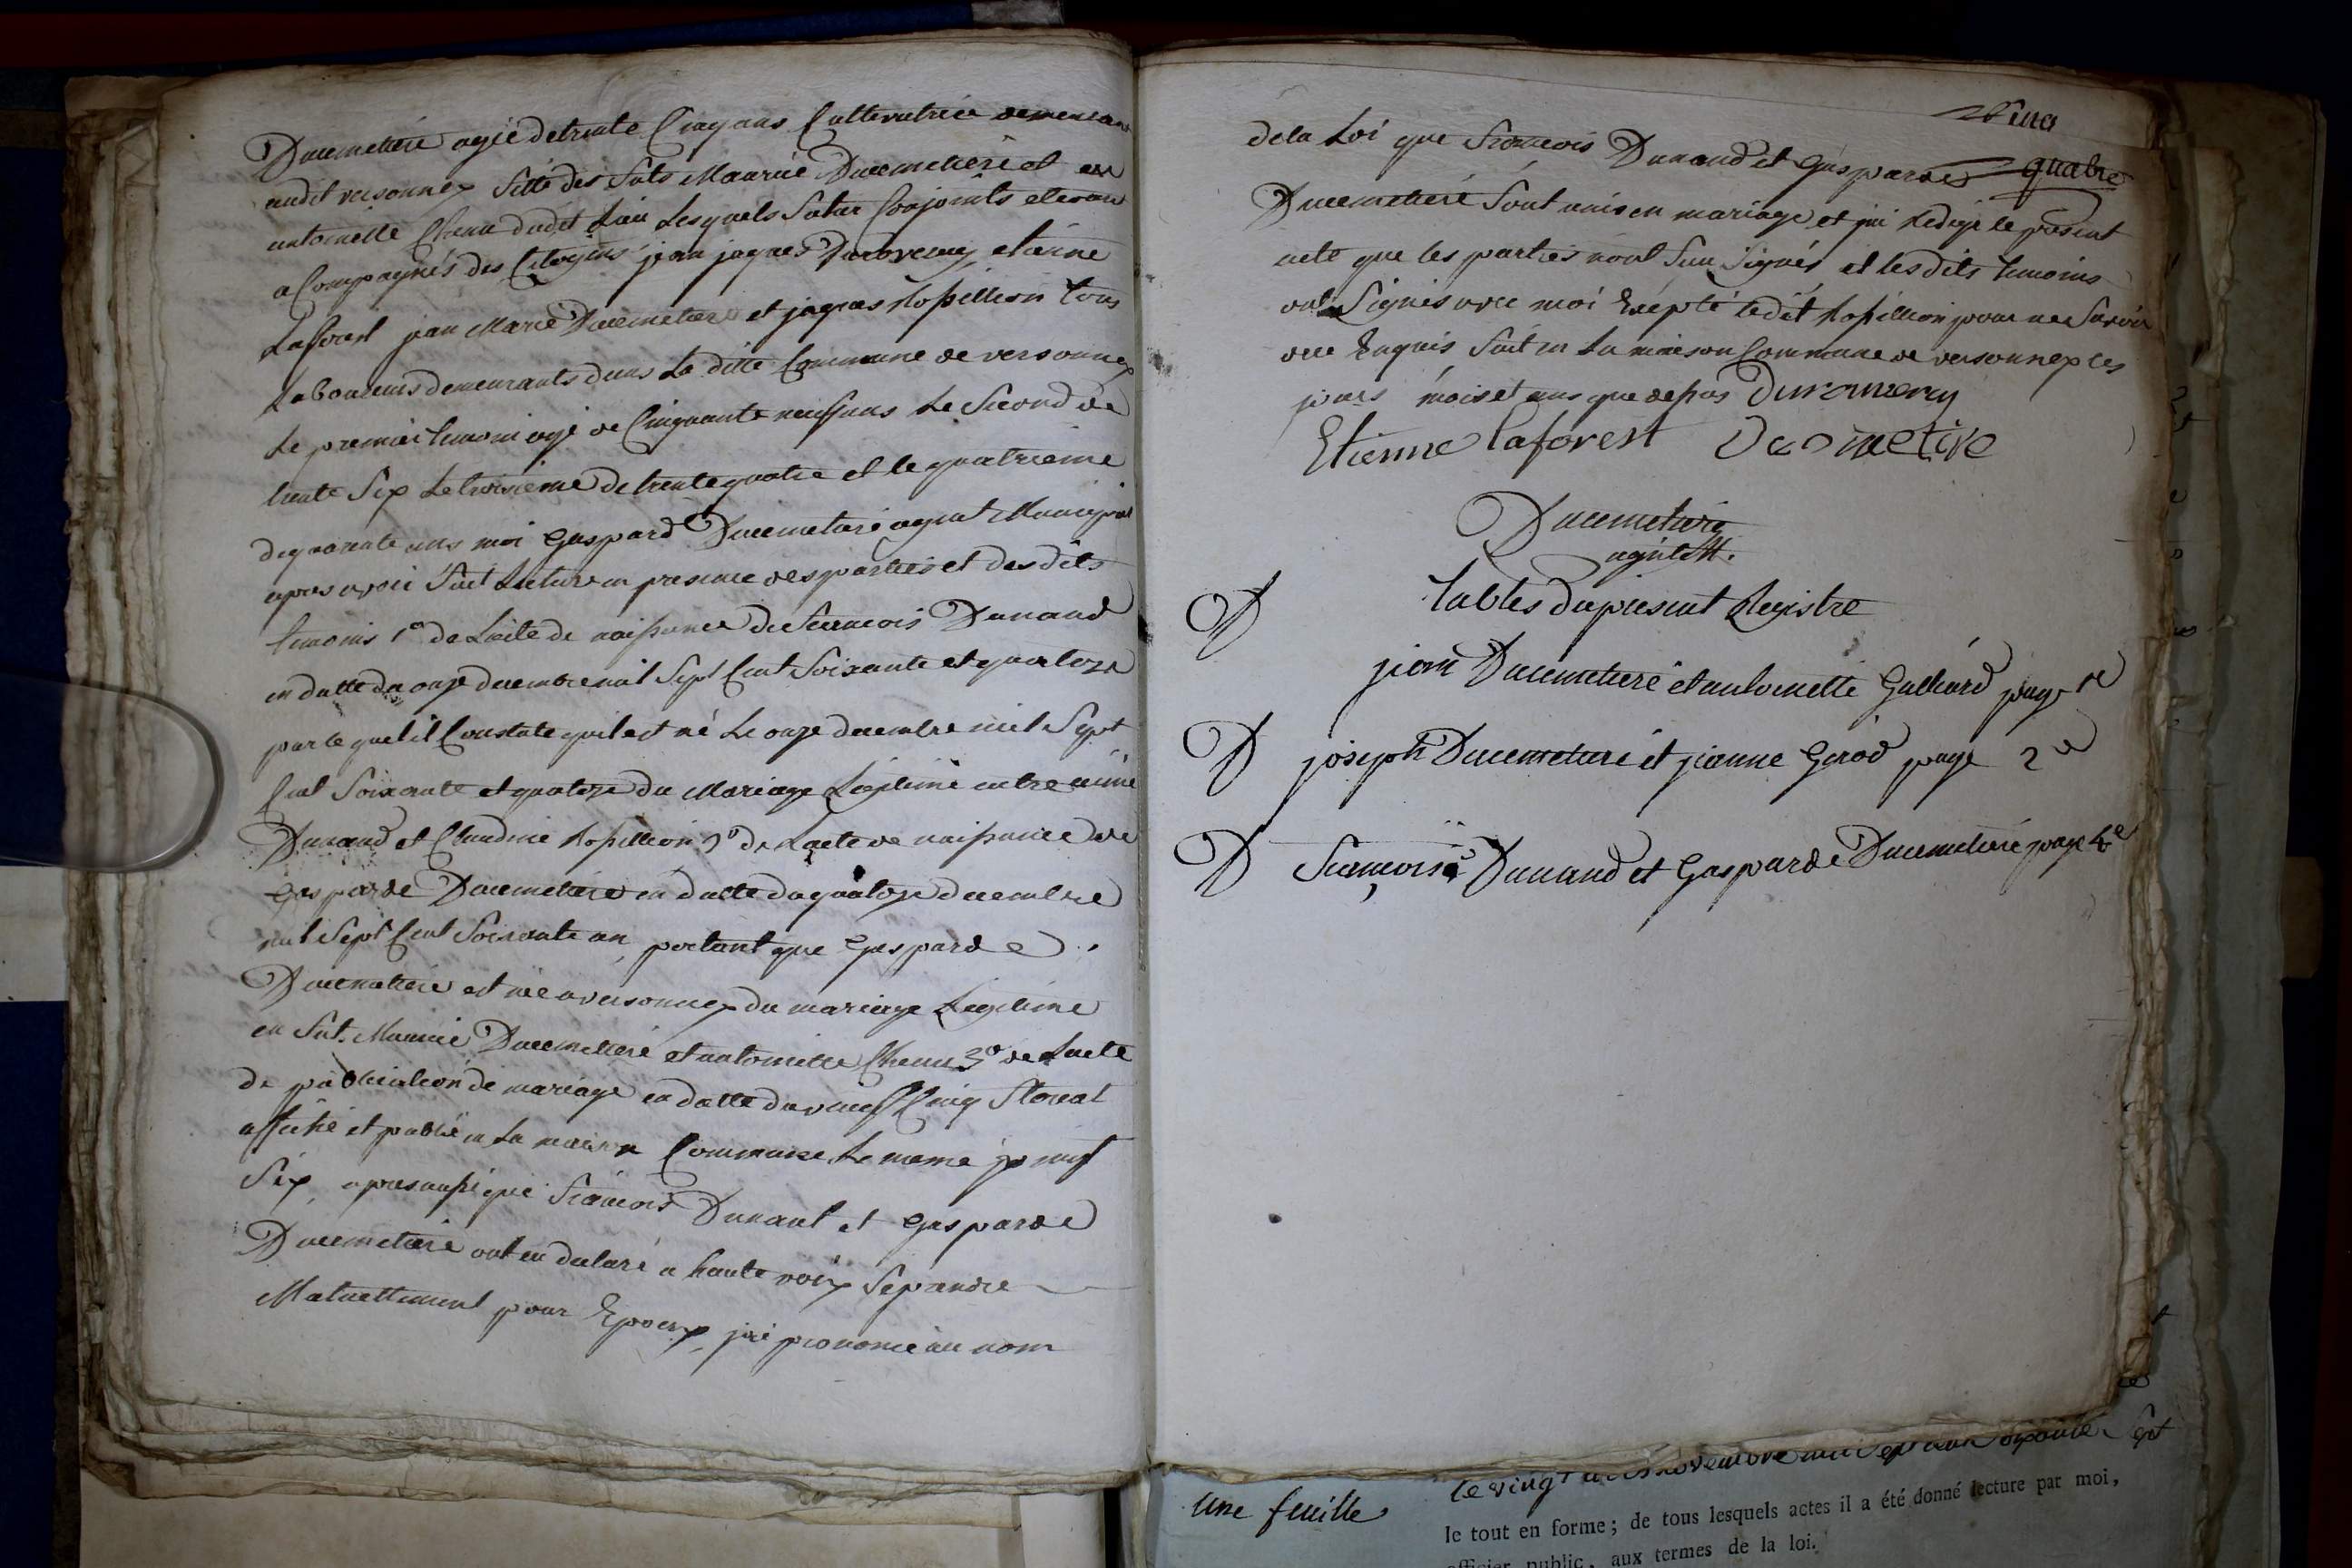 Ducemetiere agée de trente Cinq ans Cultivatrice demeurant
audit versonnex fille des futs Maurice Ducemetiere et
antoinette Chenu dudit Lieu Lesquels futur Conjoints etant
a Compagnés des Citoyens jean jaques Duravemy, etiene
Laforest jean Marie Ducemetiere et jaques Rossillion tous
Laboureurs demeurants dans La ditte Commune de versonnex
Le premier temoin agé de Cinquante neuf ans Le Second de
trente Six Le troisieme de trente quatre et le quatrieme
de quarente ans moi Gaspard Ducemetiere agent Municipal
apres avoir fait Lecture en presence des parties et des dits
temoins 1º de Lacte de naissance de francois Dunand
en datte du onze decembre mil Sept Cent Soixante et quatorze
par le quel il Constate quil est né Le onze decembre mil Sept
Cent Soixante et quatorze du Mariage Legitime entre aimé
Dunand et Claudine Rossillion 2º de Lacte de naissance de
Gasparde Ducemetiere en datte du quatorze decembre
mil Sept Cent Soixante un, portant que Gasparde
Ducemetiere est née a versonnex du mariage Legitime
en fut Maurice Ducemetiere et antoinette Chenu 3º de Lacte
de publication de mariage en datte du vingt Cinq floreal
affiché et publié en La maison Commune Le meme jour
Six, apres aussi que francois Dunant et Gasparde
Ducemetiere ont eu declaré a haute voix Se prandre
Mutuellement pour Epoux, jai prononcé au nom
quatre
de la Loi que francois Dunand et Gasparde
Ducemetiere Sont unis en mariage et jai Redigé le present
acte que les parties nont Sceu Signés et les dits temoins
ont Signés avec moi Excepté ledit Rossillion pour ne Savoir
de ce Enquis fait en La maison Commune de versonnex les
jours mois et ans que dessus Duravemy
Etienne Laforest Ducimetire
Ducemetiere
agent M.
tables du present Registre
D jean Ducemetiere et antoinette Galliard page 1e
D joseph Ducemetiere et jeanne Girod page 2e
D francois Dunand et Gasparde Ducemetiere page 4e
une feuille
le vingt novembre mil Sept cent soixante Sept
le tout en forme; de tous lesquels actes il a été donné lecture par moi,
officier public, aux termes de la loi.